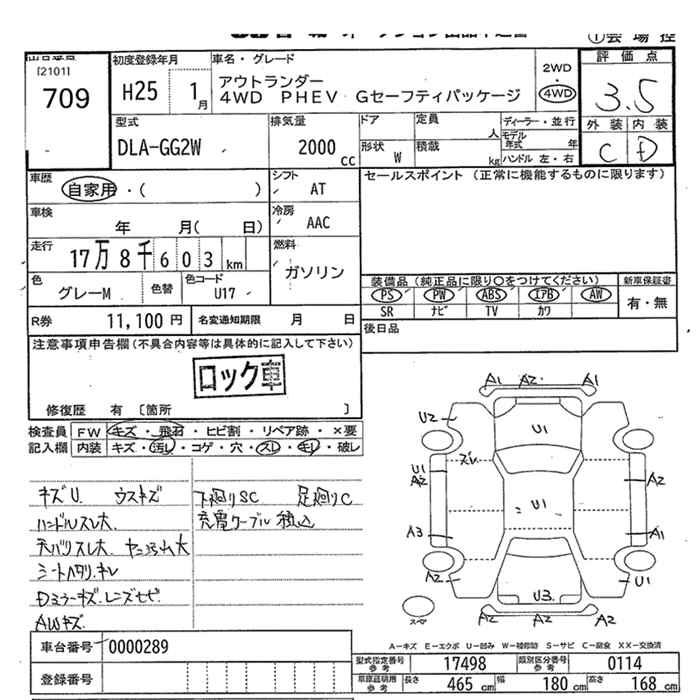 [2101]
709
初度登録年月
H25 1月
車名・グレード
アウトランダー
4WD PHEV Gセーフティパッケージ
2WD
4WD
評価点
3.5
外装 内装
C D
型式
DLA-GG2W
排気量
2000 cc
ドア
定員 人
形状 W
積載 kg
ディーラー・並行
モデル年式 年
ハンドル 左・右
車歴
自家用・( )
シフト
AT
セールスポイント (正常に機能するものに限ります)
車検
年 月( 日)
冷房
AAC
走行
17万8千603 km
燃料
ガソリン
色
グレーM
色替
色コード
U17
装備品 (純正品に限り○をつけてください)
新車保証書
PS PW ABS エアB AW
有・無
SR ナビ TV カワ
R券 11,100 円
名変通知期限 月 日
後日品
注意事項申告欄(不具合内容等は具体的に記入して下さい)
ロック車
修復歴 有 [箇所 ]
検査員 FW キズ・飛石・ヒビ割・リペア跡・×要
記入欄 内装 キズ・汚し・コゲ・穴・スレ・モレ・破レ
キズU ウスキズ
下廻りSC 足廻りC
ハンドルスレ大
充電ケーブル 積込
シートヘタリ.キレ
Dミラーキズ.レンズヒビ
AWキズ
A1 A2 A1
U2
U1
A2
U1
A2
A2
ズレ
U1
A3
A1
A2
U1
U3
A2 A2 A2
スペア
A-キズ E-エクボ U-凹み W-補修跡 S-サビ C-腐食 XX-交換済
車台番号 0000289
登録番号
型式指定番号 参考 17498
類別区分番号 参考 0114
車庫証明用 参考 長さ 465 cm 幅 180 cm 高さ 168 cm